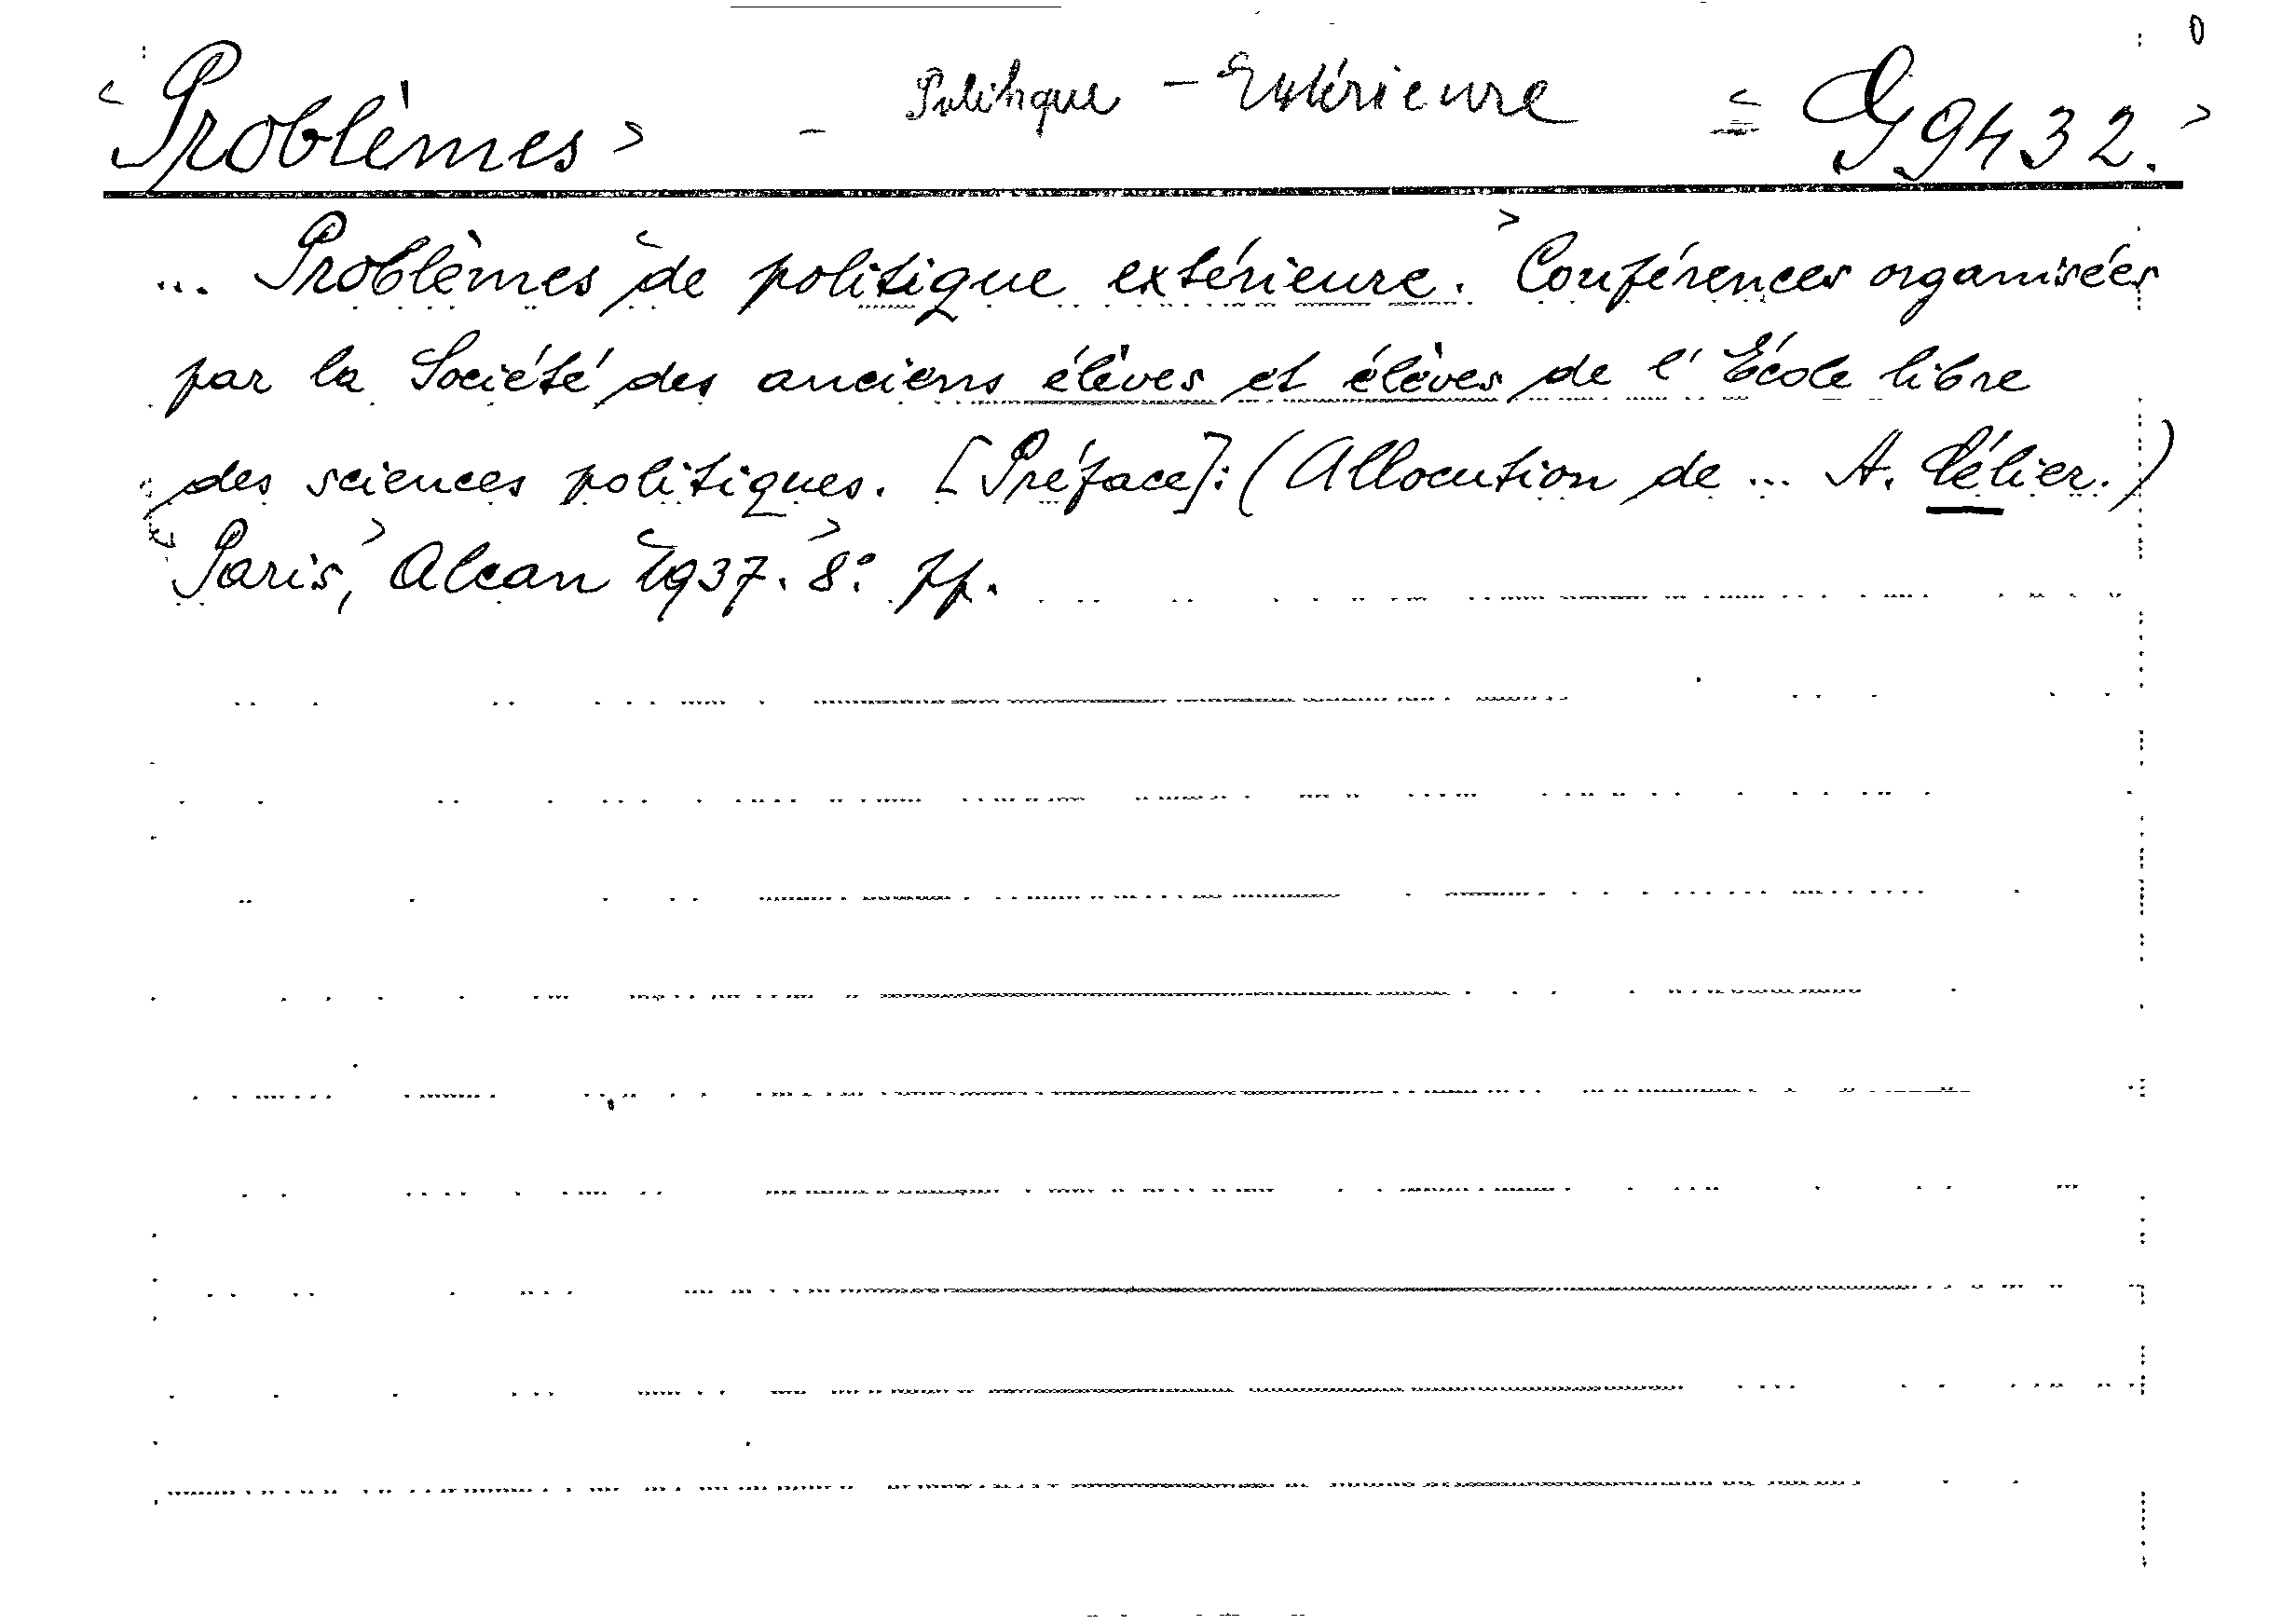 Problèmes - Politique - Extérieure G 9432.
... Problèmes de politique extérieure. Conférences organisées
par la Société des anciens élèves et élèves de l'École libre
des sciences politiques. [Préface]: (Allocution de ... A. Célier.)
Paris, Alcan 1937. 8°.